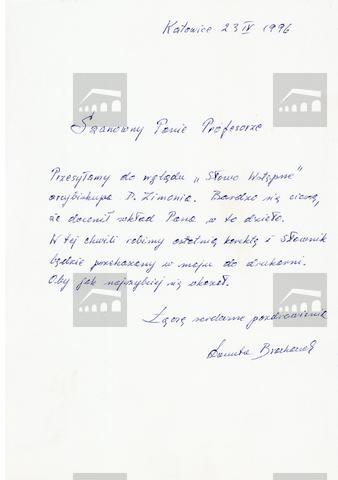 Katowice 23 IV 1996
Szanowny Panie Profesorze
Przesyłamy do wglądu „Słowo Wstępne”
arcybiskupa D. Zimonia. Bardzo się cieszę,
że docenił wkład Pana w to dzieło.
W tej chwili robimy ostatnią korektę i Słownik
będzie przekazany w maju do drukarni.
Oby jak najszybciej się ukazał.
Łączę serdeczne pozdrowienia
Danuta